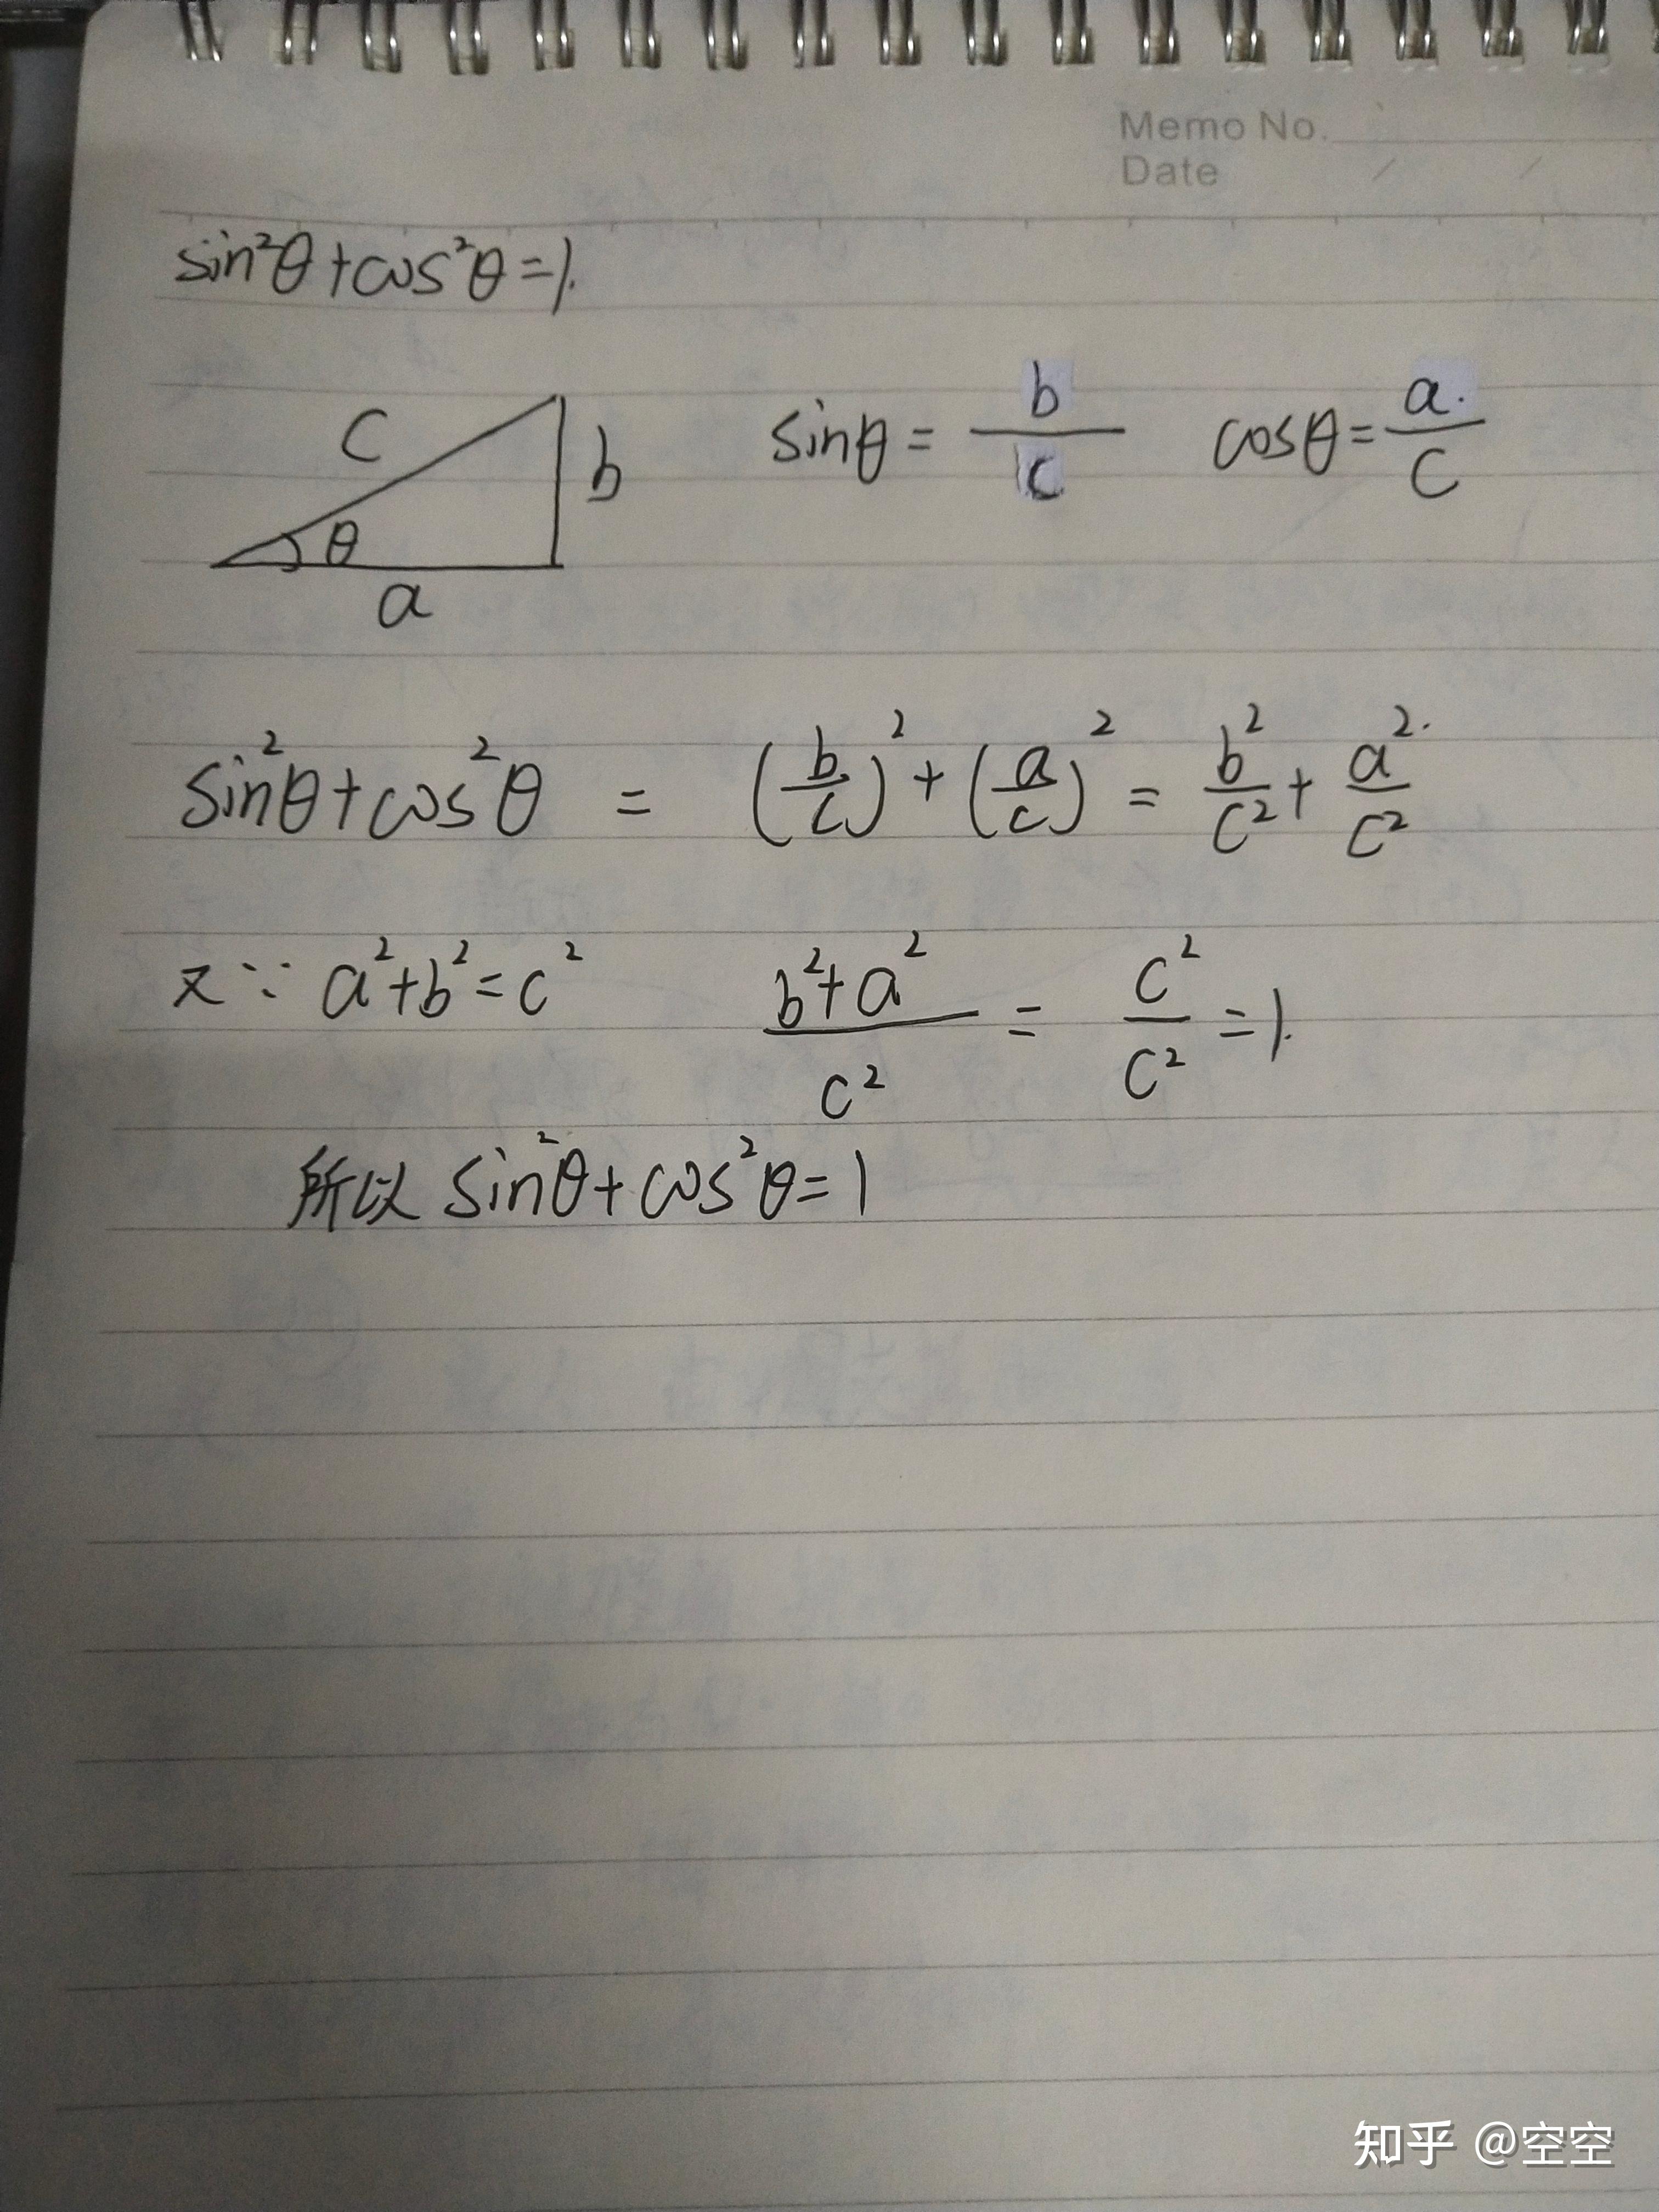 Memo No.
Date / /
sin²θ+cos²θ=1.
c
b
θ
a
sinθ = b/c cosθ = a./c
sin²θ+cos²θ = (b/c)² + (a/c)² = b²/c² + a²/c²
又∵ a²+b²=c² (b²+a²)/c² = c²/c² =1.
所以 sin²θ+cos²θ=1
知乎 @空空